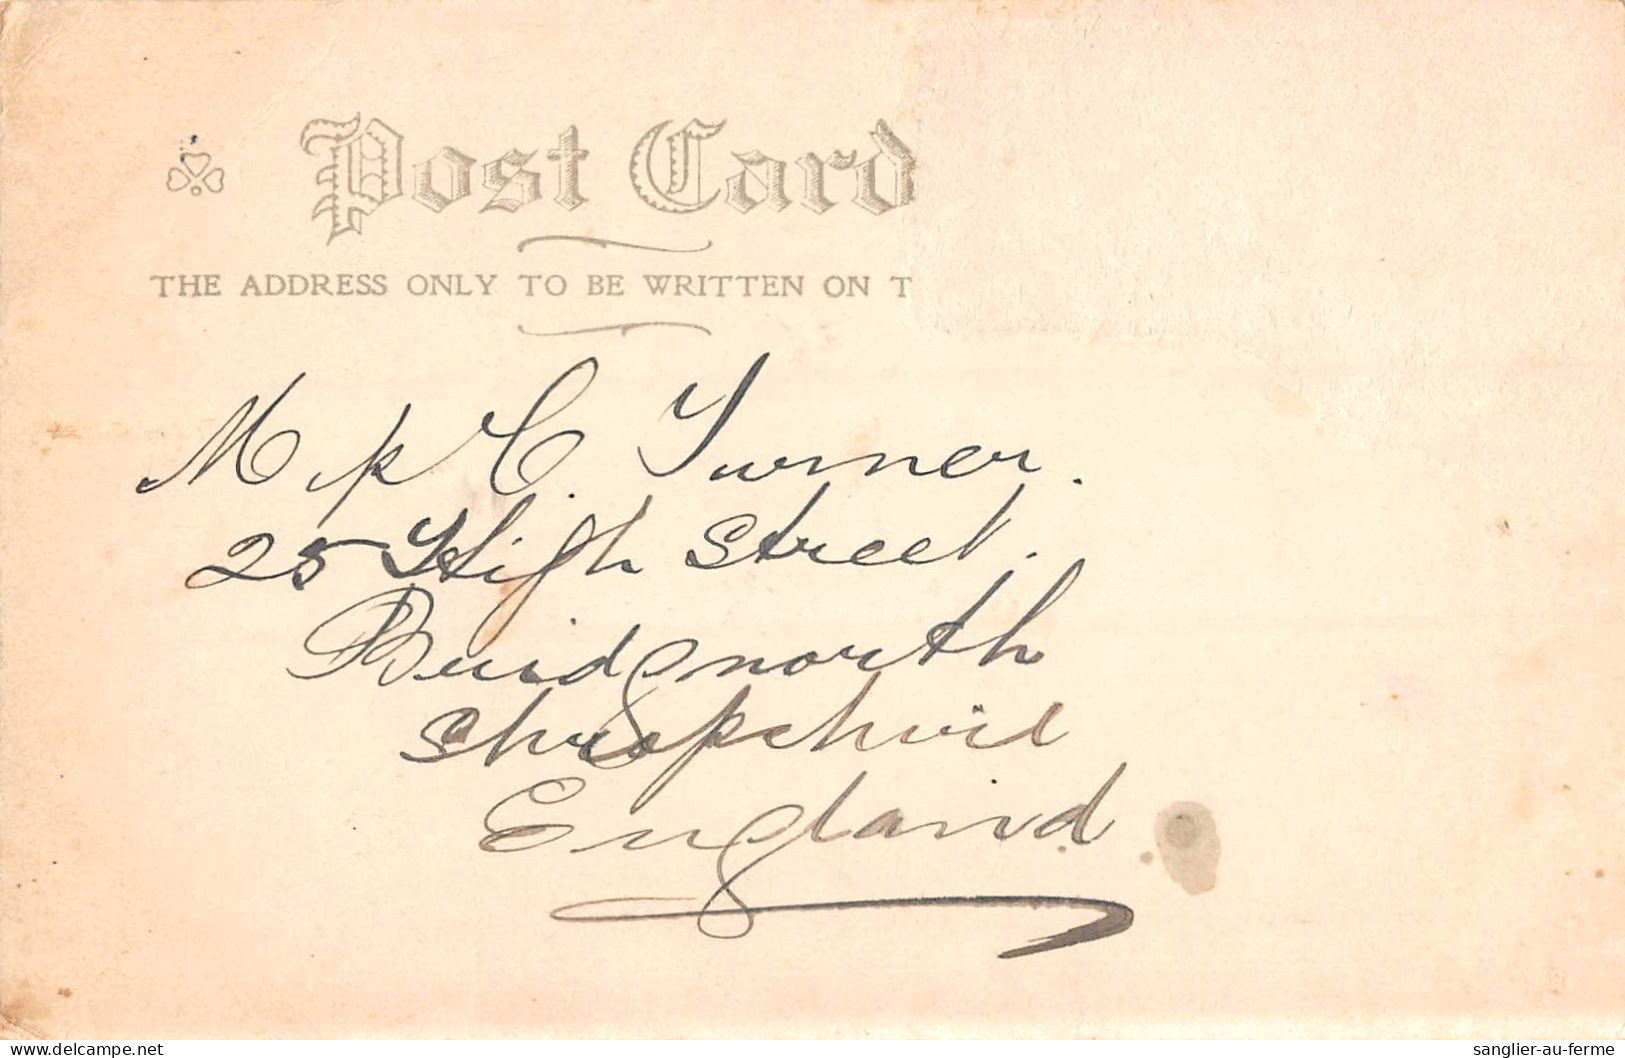 Post Card
THE ADDRESS ONLY TO BE WRITTEN ON T
C. Turner.
25 High Street.
Bridgnorth
Shropshire
England
delcampe.net
sanglier-au-ferme